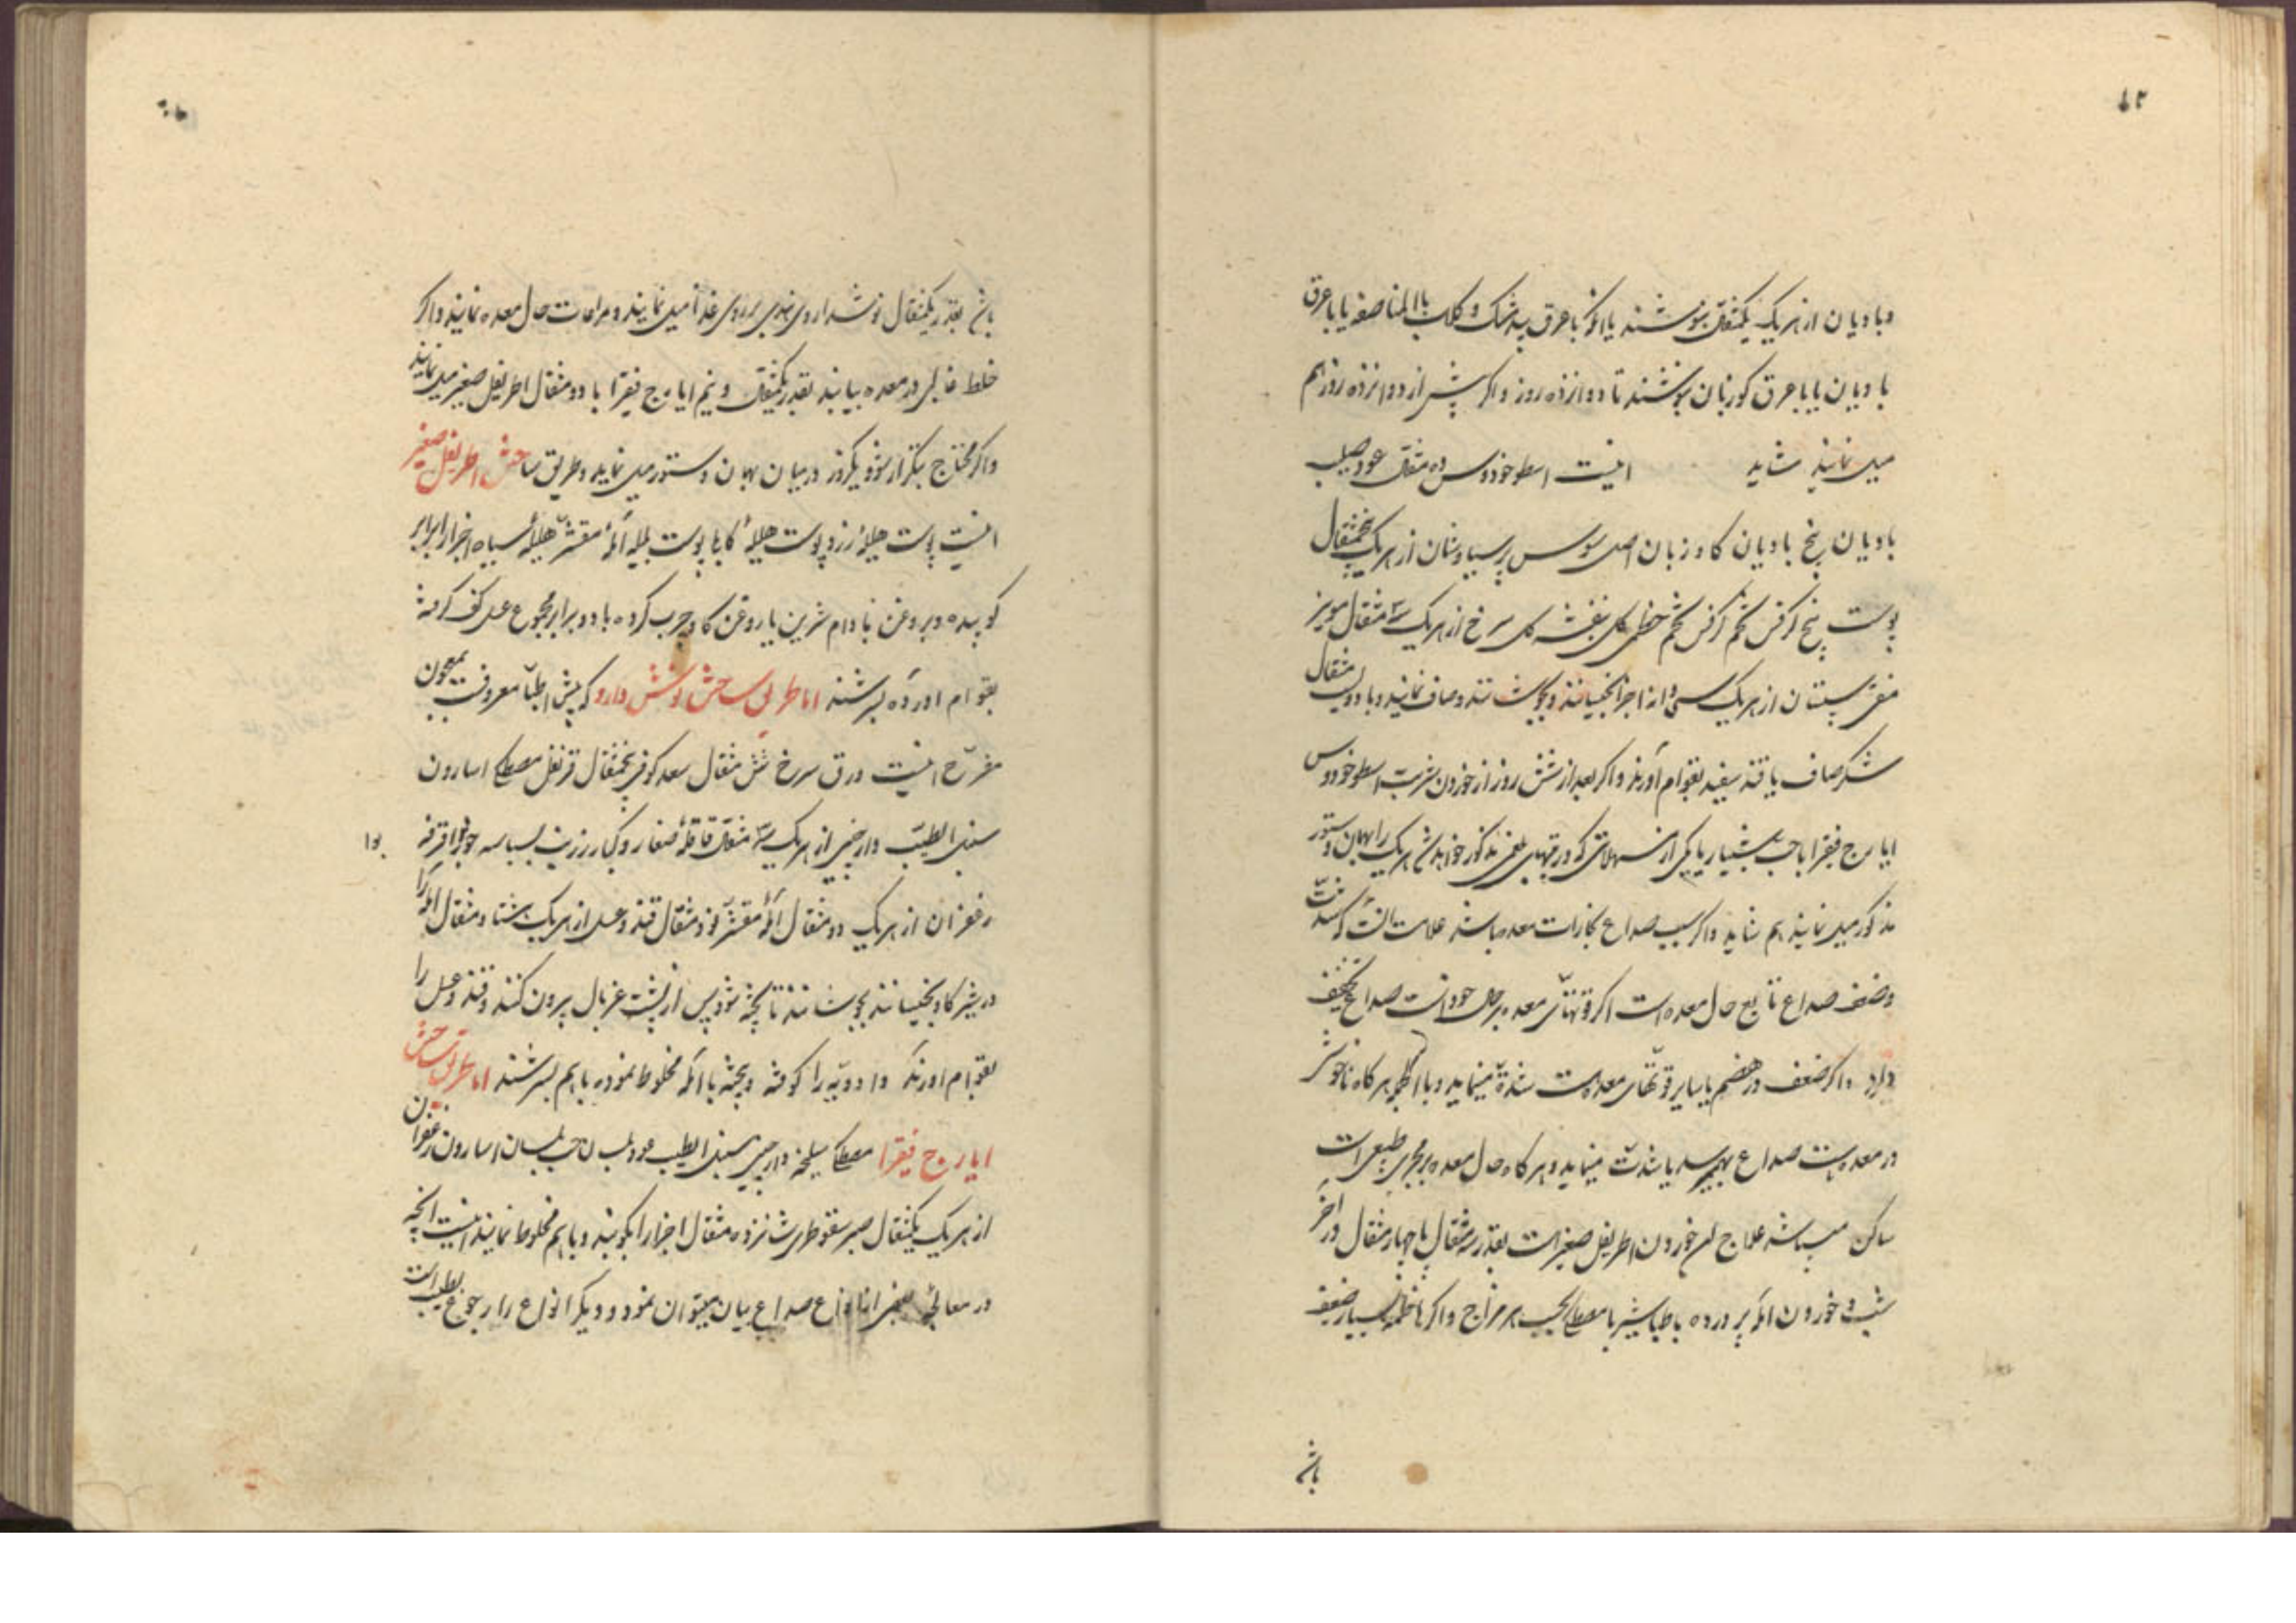 وبادیان از هریک یکمثقال بنوشند یا اوّلا با عرق بیدمشک و کلاب بالمناصفه یا باعرق
بادیان یا باعرق کاوزبان بنوشند تا دوازده روز واکر پیش از دوازده روز هم
میل نمایند شاید اینست اسطوخودوس ده مثقال عود صلیب
بادیان بیخ بادیان کاوزبان اصل سوس پرسیاوشان از هریک پنجمثقال
پوست بیخ کرفس تخم کرفس تخم خطمی کل بنفشه کل سرخ از هریک سه مثقال مویز
منقی سپستان از هریک سی دانه اجزا بخیسانند وبجوشانند وصاف نمایند وبا دویست مثقال
شکر صاف یا قند سفید بقوام آورند واکر بعد از شش روز از خوردن شربت اسطوخودوس
ایارج فیقرا یا حب شبیار یا یکی از مسهلاتی که در قسم بلغمی مذکور خواهد شد هریک را بهمان دستور
مذکور میل نمایند هم شاید واکر سبب صداع بخارات معده باشد علامت آنست که شدّت
وضعف صداع تابع حال معده است اکر قوّتهای معده بر حال خود است صداع تخفیف
دارد واکر ضعف در هضم یا سایر قوّتهای معده هست شدّة مینماید وبالجمله هرکاه ناخوشی
در معده هست صداع بهم میرسد یا شدّت مینماید وهرکاه حال معده بر مجری طبیعی است
ساکن میباشد علاج آن خوردن اطریفل صغیر است بقدر سه مثقال یا چهار مثقال در آخر
شب وخوردن آمله پرورده با طباشیر یا مصطکی بحسب هر مزاج واکر هاضمه بسیار ضعیف
باشد
باشد بقدر یکمثقال نوشداروی بر روی غذا میل نمایند ومراعات حال معده نمایند واکر
خلط غالبی در معده بیابند بقدر یکمثقال ونیم ایارج فیقرا با دو مثقال اطریفل صغیر میل نمایند
واکر محتاج بتکرار شود یکروز در میان بهمان دستور میل نماید وطریق ساختن اطریفل صغیر
اینست پوست هلیلهٔ زرد پوست هلیلهٔ کابلی پوست بلیله آملهٔ مقشّر هلیلهٔ سیاه اجزا را برابر
کوبیده وبروغن بادام شیرین یا روغن کاو چرب کرده با دو برابر مجموع عسل کف کرفته
بقوام آورده بسرشند اما طریق ساختن نوش دارو که پیش اطبّا معروفست بمعجون
مفرّح اینست ورق سرخ شش مثقال سعد کوفی پنجمثقال قرنفل مصطکی اسارون
سنبل الطیب دارچینی از هریک سه مثقال قاقلهٔ صغار وکبار زرنب بسباسه جوزبوا قرفه
زعفران از هریک دو مثقال آملهٔ مقشّر نود مثقال قند وعسل از هریک هشتاد مثقال آمله را
در شیر کاو بخیسانند بجوشانند تا پخته شود پس از پشت غربال بیرون کنند وقند وعسل را
بقوام آورند وادویه را کوفته وبیخته با آمله مخلوط نموده باهم بسرشند اما طریق ساختن
ایارج فیقرا مصطکی سلیخه دارچینی سنبل الطیب عود بلسان حب بلسان اسارون زعفران
از هریک یکمثقال صبر سقوطری شانزده مثقال اجزا را بکوبند وباهم مخلوط نمایند اینست آنچه
در معالجهٔ بعضی از انواع صداع بیان میتوان نمود ودیکر انواع را رجوع بطبیب است